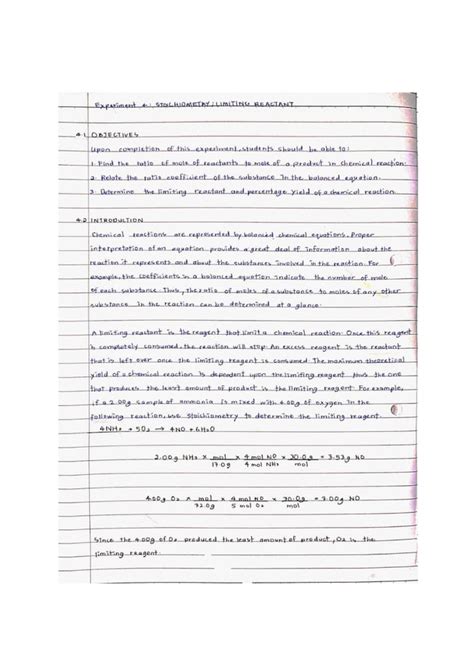 Experiment 4: STOICHIOMETRY: LIMITING REACTANT
4.1 OBJECTIVES
Upon completion of this experiment, students should be able to:
1. Find the ratio of mole of reactants to mole of a product in chemical reaction.
2. Relate the ratio coefficient of the substance in the balanced equation.
3. Determine the limiting reactant and percentage yield of a chemical reaction.
4.2 INTRODUCTION
Chemical reactions are represented by balanced chemical equations. Proper
interpretation of an equation provides a great deal of information about the
reaction it represents and about the substances involved in the reaction. For
example, the coefficients in a balanced equation indicate the number of mole
of each substance. Thus, the ratio of moles of a substance to moles of any other
substance in the reaction can be determined at a glance.
A limiting reactant is the reagent that limit a chemical reaction. Once this reagent
is completely consumed, the reaction will stop. An excess reagent is the reactant
that is left over once the limiting reagent is consumed. The maximum theoretical
yield of a chemical reaction is dependent upon the limiting reagent thus the one
that produces the least amount of product is the limiting reagent. For example,
if a 2.00g sample of ammonia is mixed with 4.00g of oxygen in the
following reaction, use stoichiometry to determine the limiting reagent.
4NH₃ + 5O₂ → 4NO + 6H₂O
2.00g NH₃ × mol/17.0g × 4 mol NO/4 mol NH₃ × 30.0g/mol = 3.53g NO
4.00g O₂ × mol/32.0g × 4 mol NO/5 mol O₂ × 30.0g/mol = 3.00g NO
Since the 4.00g of O₂ produced the least amount of product, O₂ is the
limiting reagent.